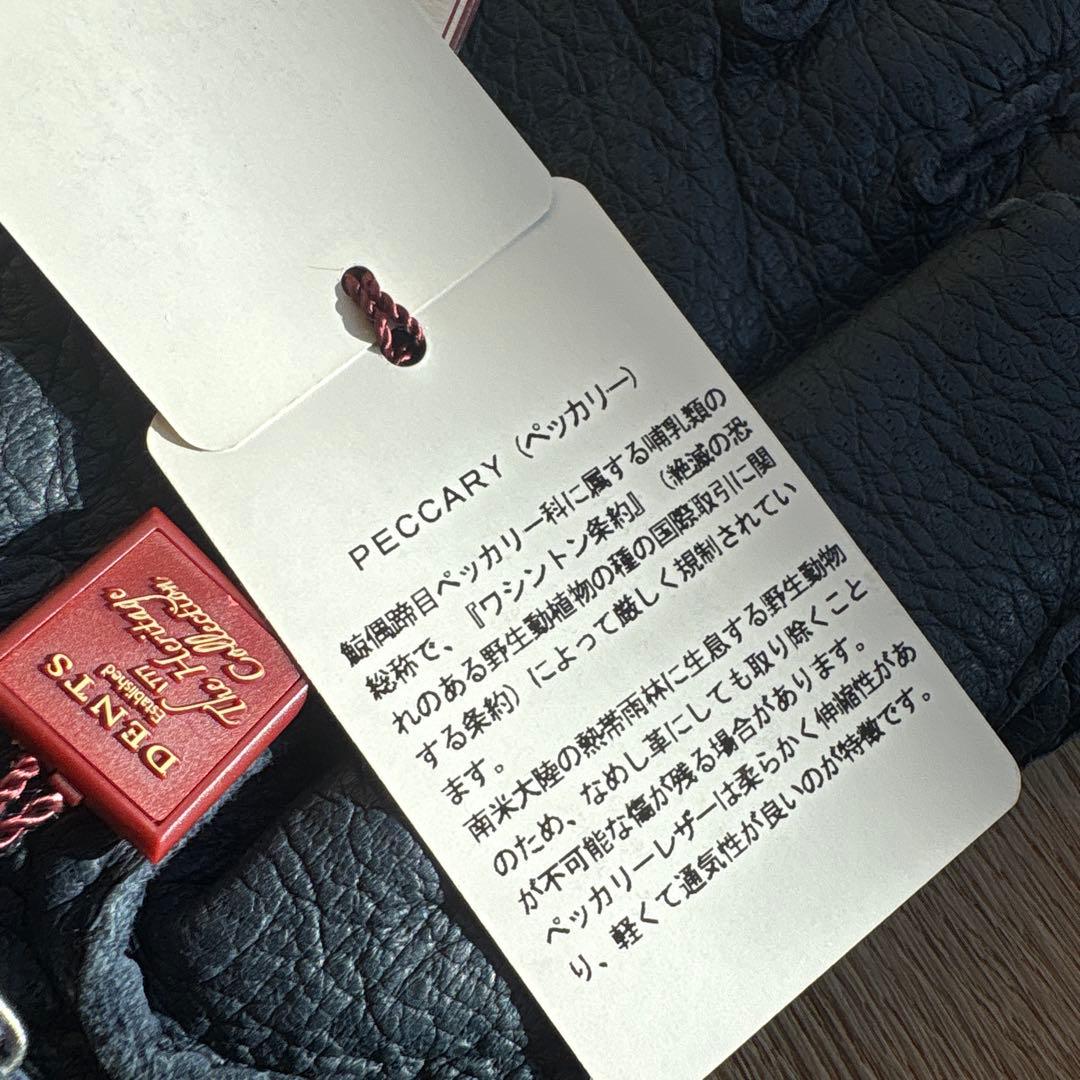 PECCARY (ペッカリー)
鯨偶蹄目ペッカリー科に属する哺乳類の
総称で、『ワシントン条約』(絶滅の恐
れのある野生動植物の種の国際取引に関
する条約)によって厳しく規制されてい
ます。
南米大陸の熱帯雨林に生息する野生動物
のため、なめし革にしても取り除くこと
が不可能な傷が残る場合があります。
ペッカリーレザーは柔らかく伸縮性があ
り、軽くて通気性が良いのが特徴です。
DENTS
Established
1777
The Heritage
Collection